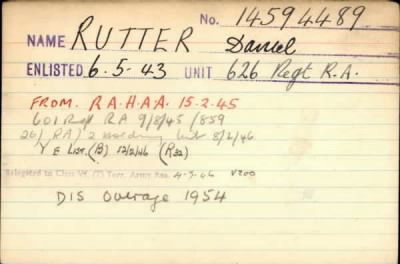 No. 14594489
NAME RUTTER Daniel
ENLISTED 6.5-43 UNIT 626 Regt R.A.
FROM. R A-H-A.A. 15-2-45
601 Regt RA 9/8/45 /859
RA) 2 holding unit 8/2/46
Y E LIST. (B) 12/2/46 (R32)
Relegated to Class W. (T) Terr. Army Res. 4-5-46 V200
DIS Overage 1954